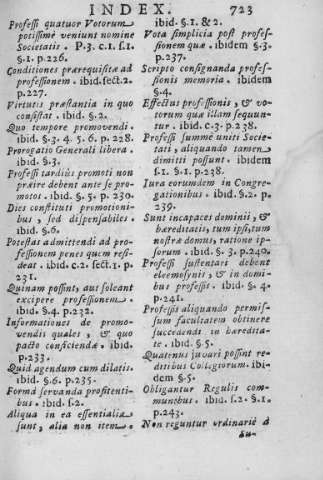 INDEX. 723
Professi quatuor Votorum
potissimè veniunt nomine
Societatis . P.3. c.1. f.1
§.1. p.226.
Conditiones præreqúisitæ ad
professionem . ibid. sect.2.
p.227.
Virtutis præstantia in quo
consistat . ibid. §.2.
Quo tempore promovendi.
ibid. §.3. 4. 5. 6. p.228.
Prorogatio Generali libera.
ibid. §.3.
Professi tardiùs promoti non
præire debent ante se pro-
motos . ibid. §. 5. p. 230.
Dies constituti promotioni-
bus , sed dispensabiles .
ibid. §.6.
Potestas admittendi ad pro-
fessionem penes quem resi-
deat . ibid. c.2. sect.1. p.
231.
Quinam possint, aut soleant
excipere professionem .
ibid. §.4. p.232.
Informationes de promo-
vendis quales ; & quo
pacto conficiendæ . ibid.
p.233.
Quid agendum cum dilatis.
ibid. §.6. p.235.
Forma servanda profitenti-
bus . ibid. s.2.
Aliqua in ea essentialia
sunt, alia non item .
ibid. §.1. & 2.
Vota simplicia post profes-
sionem quæ . ibidem §.3.
p.237.
Scripto consignanda profes-
sionis memoria . ibidem
§.4.
Effectus professionis , & vo-
torum quæ illam sequun-
tur . ibid. c.3. p.238.
Professi summè uniti Socie-
tati, aliquando tamen
dimitti possunt . ibidem
s.1. §.1. p.238.
Iura eorumdem in Congre-
gationibus . ibid. §.2. p.
239.
Sunt incapaces dominii, &
hæreditatis, tum ipsi, tum
nostræ domus, ratione ip-
sorum . ib. §. 3. p.240.
Professi sustentari debent
eleemosynis , & in domi-
bus professis . ibid. §. 4.
p.241.
Professis aliquando permis-
sum facultatem obtinere
succedendi in hæredita-
te . ibid. §.5.
Quatenus juvari possint re-
ditibus Collegiorum. ibi-
dem §.5.
Obligantur Regulis com-
munibus . ibid. s.2. §.1.
p.243.
Non reguntur ordinariè à
Su-